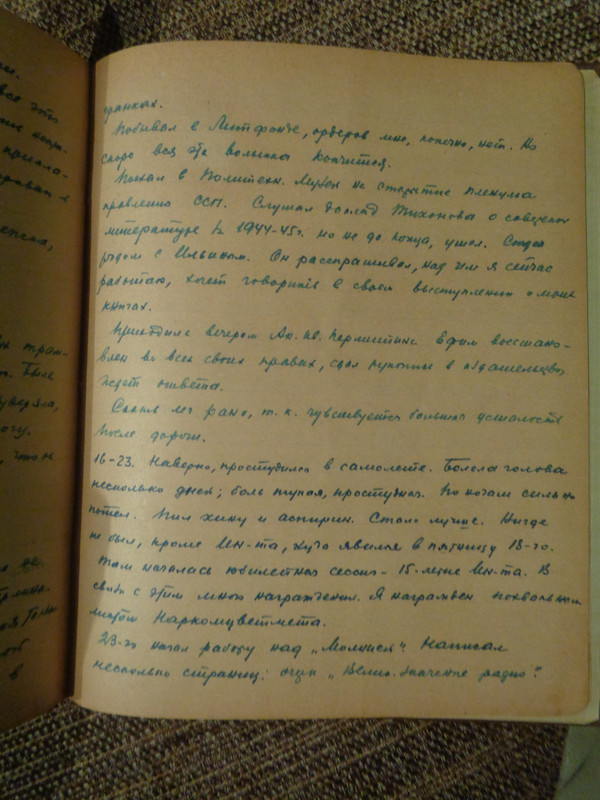 ии.
все это
странках.
Побывал в Литфонде, ордеров мне, конечно, нет. Но
скоро вся эта волынка кончится.
Поехал в Политехн. Музей на открытие пленума
правления ССП. Слушал доклад Тихонова о советской
литературе в 1944-45 г. но не до конца, ушел. Сидел
рядом с Ильиным. Он расспрашивал, над чем я сейчас
работаю, хочет говорить в своем выступлении о моих
книгах.
Приходила вечером Ан. Ив. Пермитина. Ефим восстано-
влен во всех своих правах, сдал рукопись в издательство,
ждет ответа.
Спать лег рано, т. к. чувствуется большая усталость
после дороги.
16-23. Наверно, простудился в самолете. Болела голова
несколько дней; боль тупая, простудная. По ночам сильно
потел. Пил хину и аспирин. Стало лучше. Нигде
не был, кроме Ин-та, куда явился в пятницу 18-го.
Там началась юбилейная сессия - 15-летие Ин-та. В
связи с этим много награждений. Я награжден похвальным
листом Наркомцветмета.
23-го начал работу над „Молнией". Написал
несколько страниц: очерк „Велико значение радио".